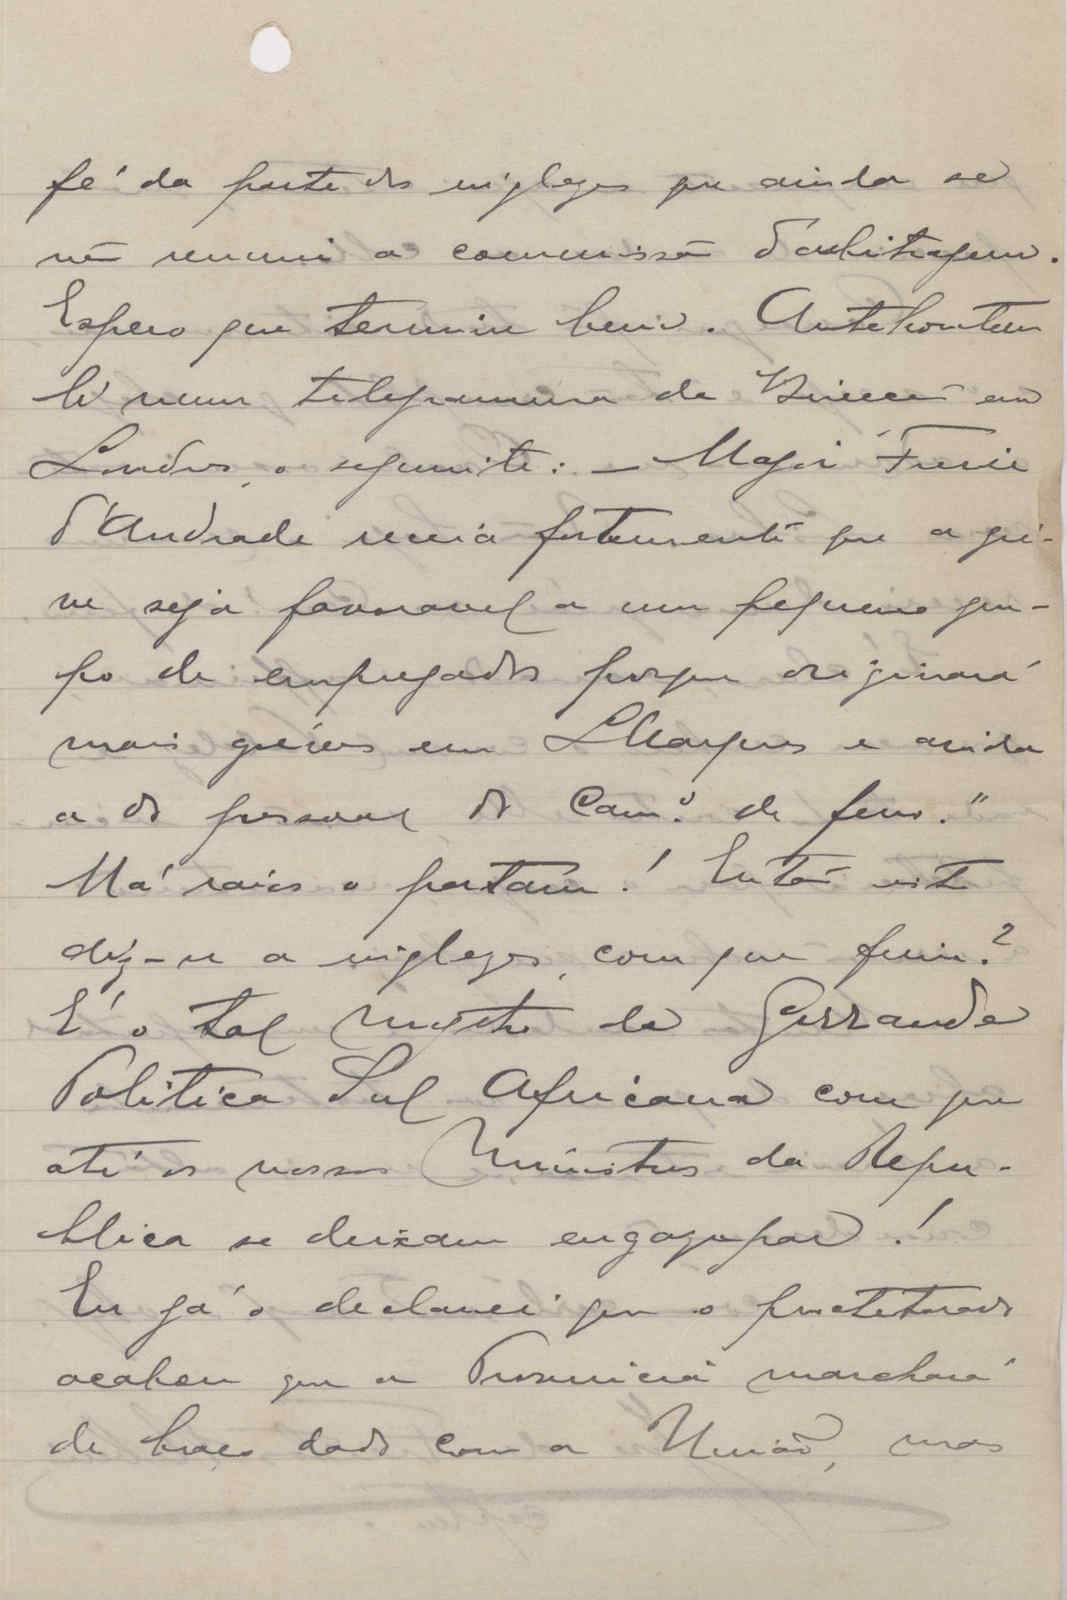 fé da parte dos inglezes que ainda se
não reuniu a commissão d'arbitragem.
Espero que termine bem. Antehontem
li num telegramma de para
Londres, o seguinte: — Major Freire
d'Andrade receia fortemente que a gré-
ve seja favoravel a um pequeno gru-
po de empregados porque originará
mais gréves em LMarques e ainda
a do pessoal do Cam.º de ferro."
Má raios o partam! Então isto
diz-se a inglezes, com que fim?
É o tal mytho da Garrande
Politica Sul Africana com que
até os nossos Ministros da Repu-
blica se deixam engazupar!
Eu já o declarei que o protetorado
acabou que a Provincia marchará
de braço dado com a União, mas